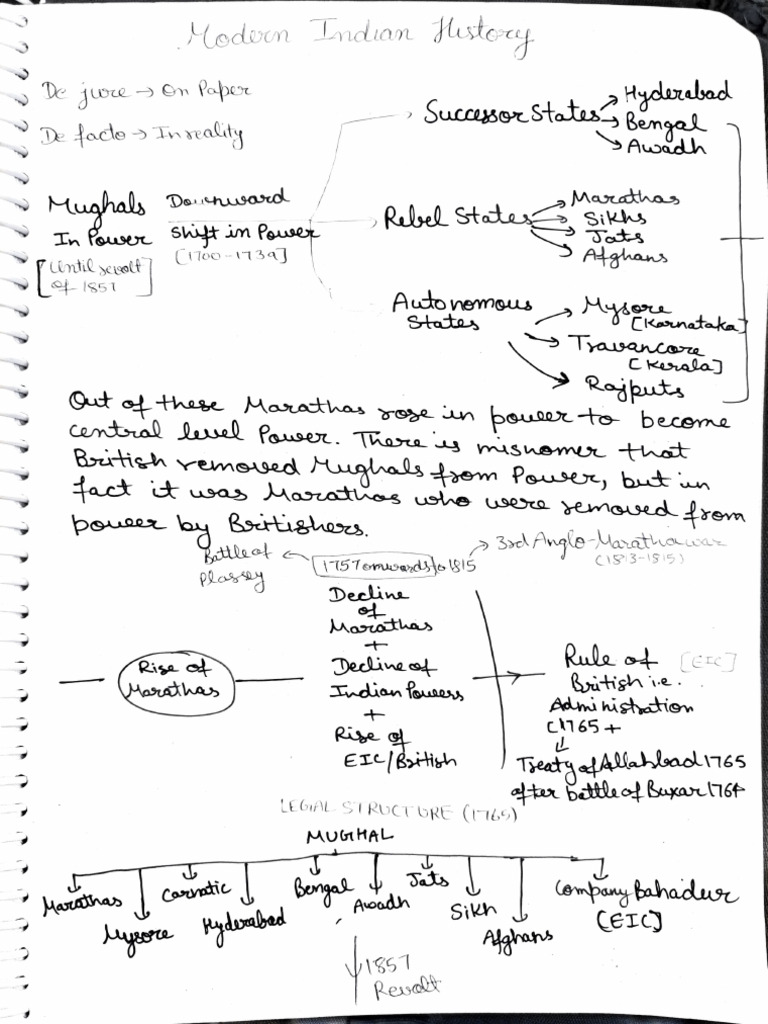 Modern Indian History
De jure → On Paper
De facto → In reality
Successor States
Hyderabad
Bengal
Awadh
Mughals
In Power
[Until revolt
of 1857]
Downward
shift in Power
[1700-1739]
Rebel States
Marathas
Sikhs
Jats
Afghans
Autonomous
States
Mysore
[Karnataka]
Travancore
[Kerala]
Rajputs
Out of these Marathas rose in power to become
central level Power. There is misnomer that
British removed Mughals from Power, but in
fact it was Marathas who were removed from
power by Britishers.
Battle of
Plassey
1757 onwards to 1815
3rd Anglo-Maratha war
(1813-1815)
Rise of
Marathas
Decline
of
Marathas
+
Decline of
Indian Powers
+
Rise of
EIC/British
Rule of [EIC]
British i.e.
Administration
(1765 +
Treaty of Allahbad 1765
after battle of Buxar 1764
LEGIAL STRUCTURE (1765)
MUGHAL
Marathas
Mysore
Carnatic
Hyderabad
Bengal
Awadh
Jats
Sikh
Afghans
Company Bahadur
[EIC]
1857
Revolt